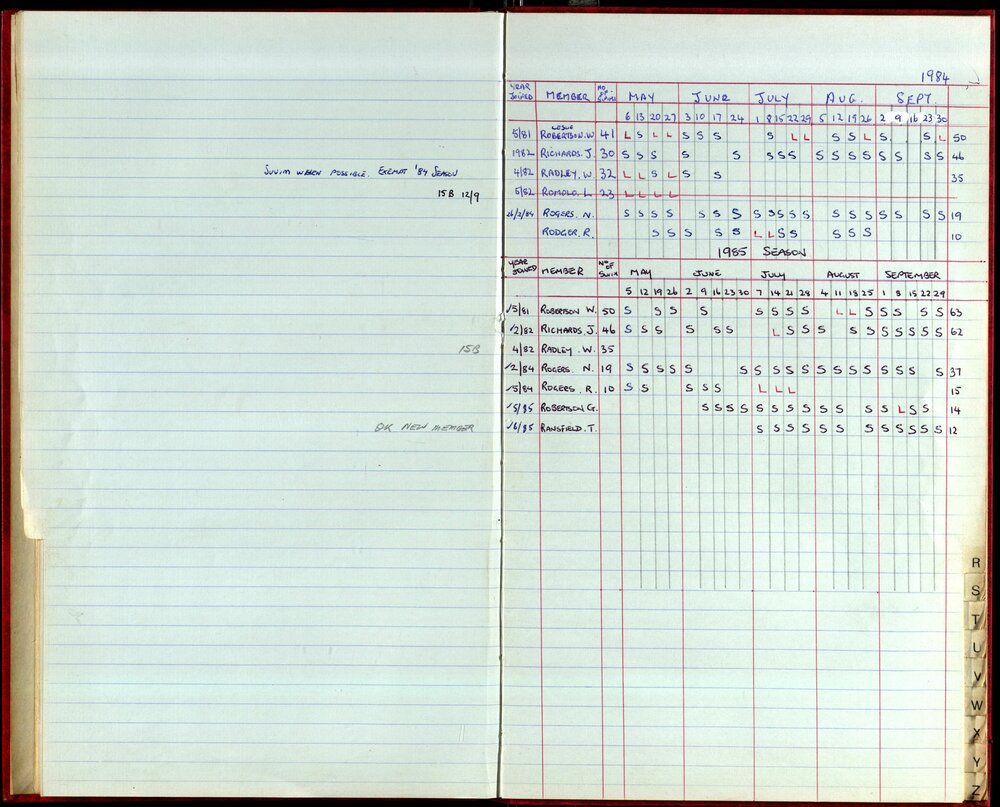 SWIM WHEN POSSIBLE. EXEMPT '84 SEASON
15B 12/9
15B
OK NEW MEMBER
1984
YEAR JOINED MEMBER NO OF SWIMS MAY JUNE JULY AUG. SEPT.
6 13 20 27 3 10 17 24 1 8 15 22 29 5 12 19 26 2 9 16 23 30
LESLIE
5/81 ROBERTSON.W 41 L S L L S S S S L L S S L S S L 50
1982 RICHARDS. J. 30 S S S S S S S S S S S S S S S S S 46
4/82 RADLEY. W. 32 L L S L S S 35
5/82 ROMOLO. L 23 L L L L
26/2/84 ROGERS. N. S S S S S S S S S S S S S S S S S S S S S 19
RODGER. R. S S S S S L L S S S S S 10
1985 SEASON
YEAR JOINED MEMBER NO OF SWIM MAY JUNE JULY AUGUST SEPTEMBER
5 12 19 26 2 9 16 23 30 7 14 21 28 4 11 18 25 1 8 15 22 29
5/81 ROBERTSON W. 50 S S S S S S S S L L S S S S S 63
2/82 RICHARDS. J. 46 S S S S S S L S S S S S S S S S S 62
4/82 RADLEY. W. 35
2/84 ROGERS. N. 19 S S S S S S S S S S S S S S S S S S S 37
5/84 ROGERS. R. 10 S S S S S L L L 15
5/85 ROBERTSON G. S S S S S S S S S S S S S L S S 14
6/85 RANSFIELD. T. S S S S S S S S S S S S 12
R
S
T
U
V
W
X
Y
Z